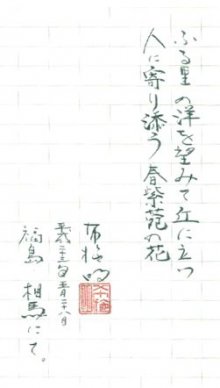 ふる里の洋を望みて丘に立つ
人に寄り添う春紫苑の花
平成二十三年五月二十八日
福島 相馬にて。